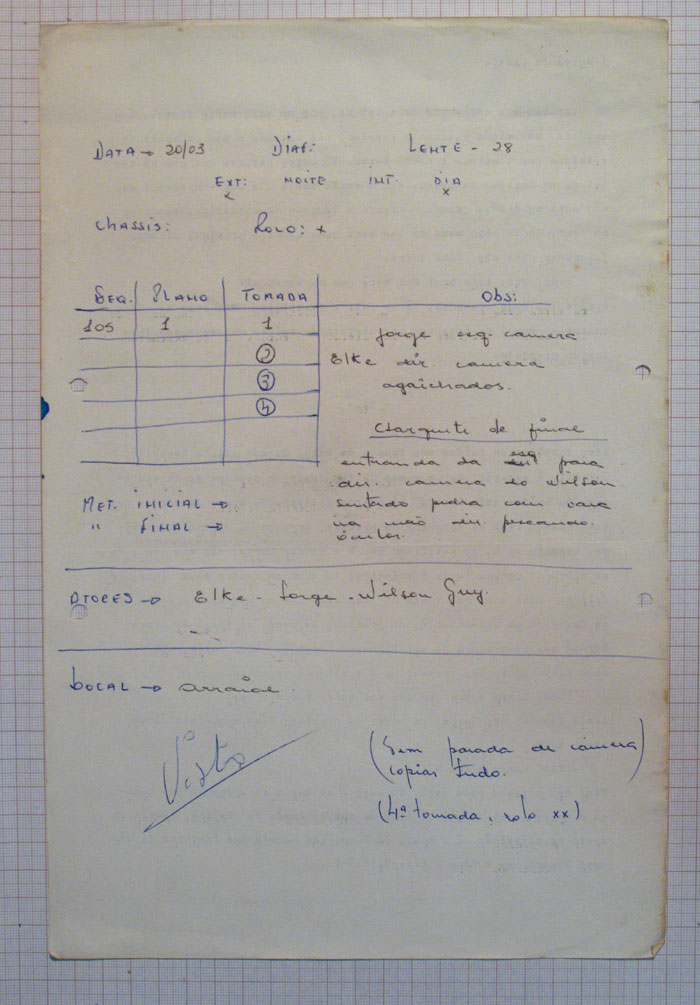 DATA → 20/03 DIAF: LENTE - 28
EXT: NOITE INT. DIA
x x
CHASSIS: ROLO: x
SEQ. PLANO TOMADA Obs:
105 1 1 Jorge esq. camera
2 Elke dir. camera
3 agaichados.
4
Claquete de final
entranda da esq para
dir. camera do Wilson
MET. INICIAL → sentado pedra com vara
" FINAL → na mão dir. pescando
ATORES → Elke - Jorge - Wilson Guy.
LOCAL → arraial.
Visto
(Sem parada de câmera)
copiar tudo.
(4ª tomada, rolo xx)